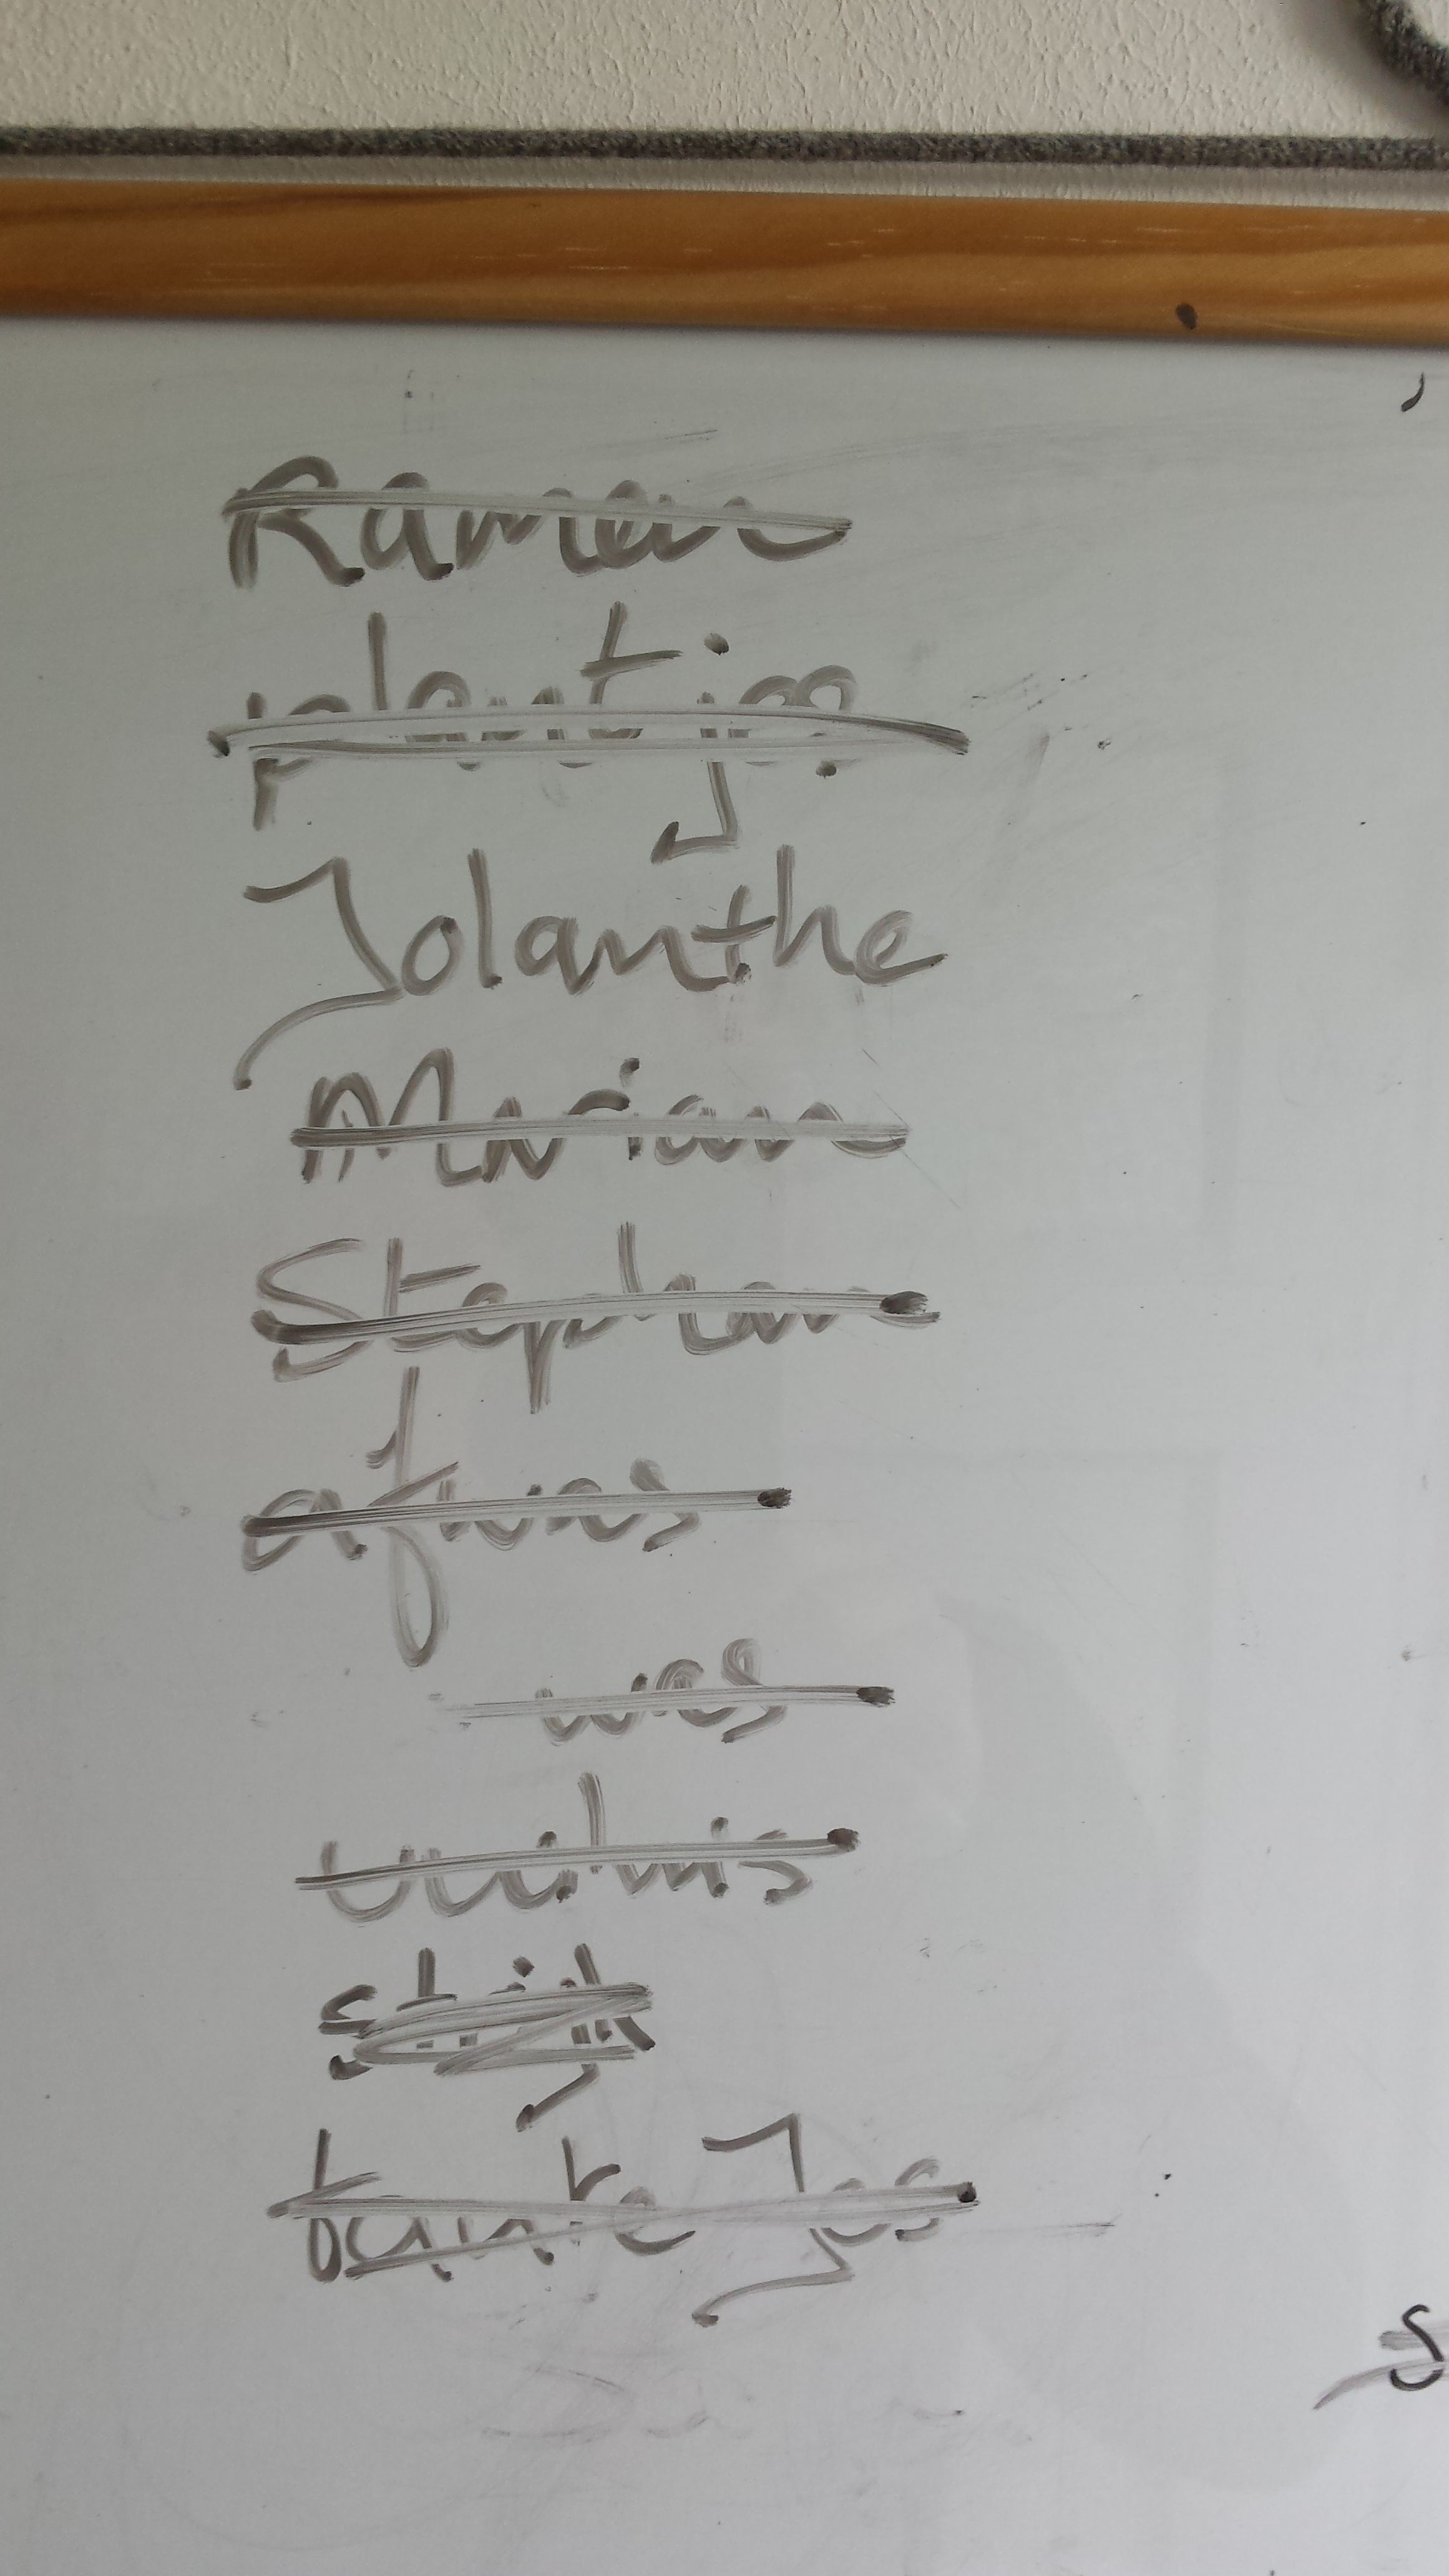 Ramen
plantjes
Jolanthe
Mirian
Stephan
afwas
was
vuilnis
strijk
tante Jos
S